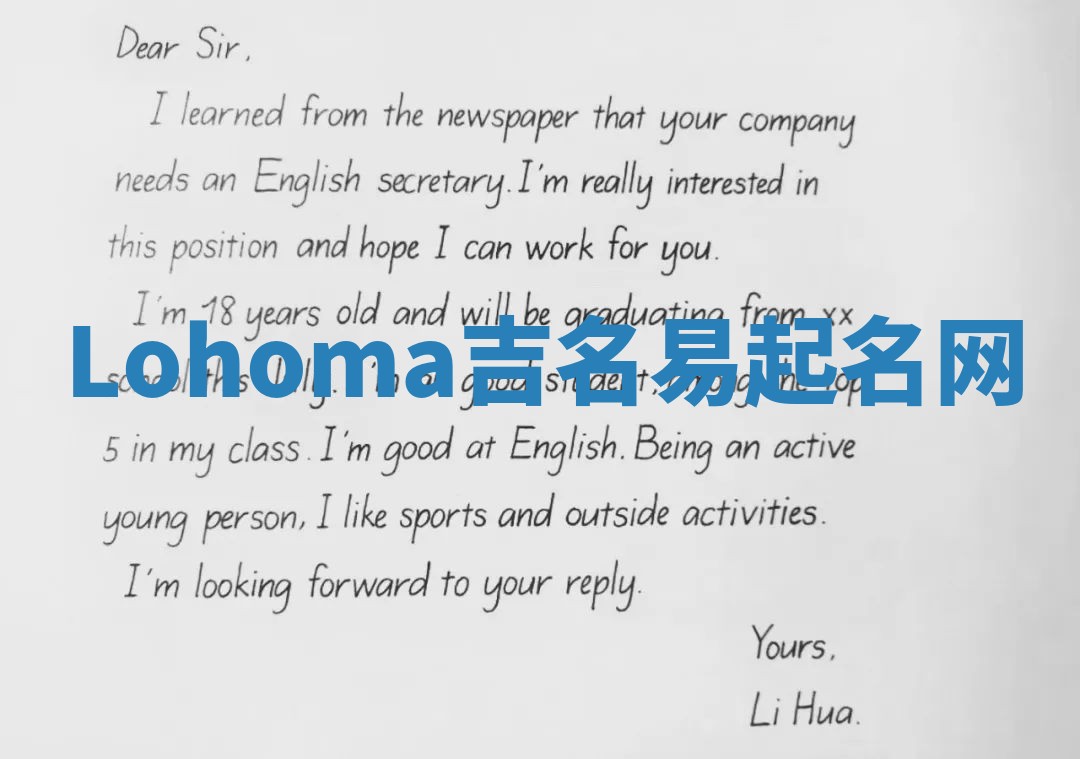 Dear Sir,
I learned from the newspaper that your company
needs an English secretary. I'm really interested in
this position and hope I can work for you.
I'm 18 years old and will be graduating from xx
Lohoma吉名易起名网
school this July. I'm a good student, among the top
5 in my class. I'm good at English. Being an active
young person, I like sports and outside activities.
I'm looking forward to your reply.
Yours,
Li Hua.